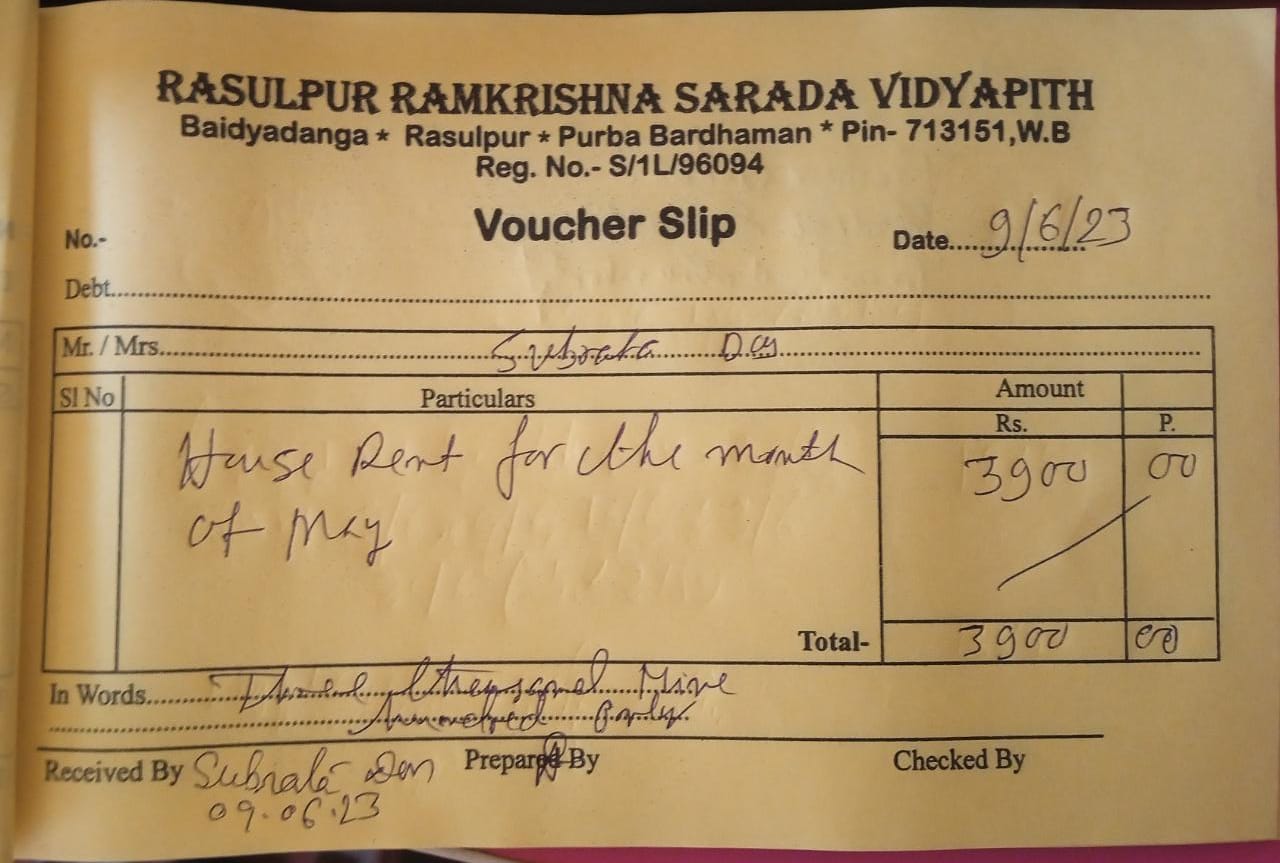 RASULPUR RAMKRISHNA SARADA VIDYAPITH
Baidyadanga * Rasulpur * Purba Bardhaman * Pin- 713151,W.B
Reg. No.- S/1L/96094
Voucher Slip
No.-
Date......9/6/23
Debt.....
Mr. / Mrs..... Subrata
Sl No Particulars Amount
Rs. P.
House Rent for the month 3900 00
of May
Total- 3900 00
In Words..... Three thousand Nine
hundred only.
Received By Subrata Prepared By Checked By
09.06.23